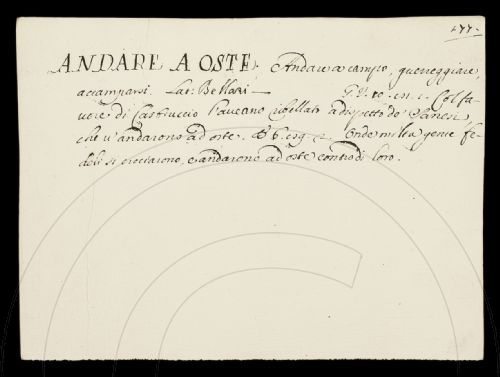 477.
ANDARE A OSTE. Andare a campo, guerreggiare,
accamparsi. Lat: Bellari — G. V. 10. 151. 1. Col fa-
vore di Castruccio l'aveano ribellato a dispetto de' Sanesi,
che v'andarono ad oste. E 6. 2. Onde molta gente fe-
deli si crociarono, e andarono ad oste contro di loro.